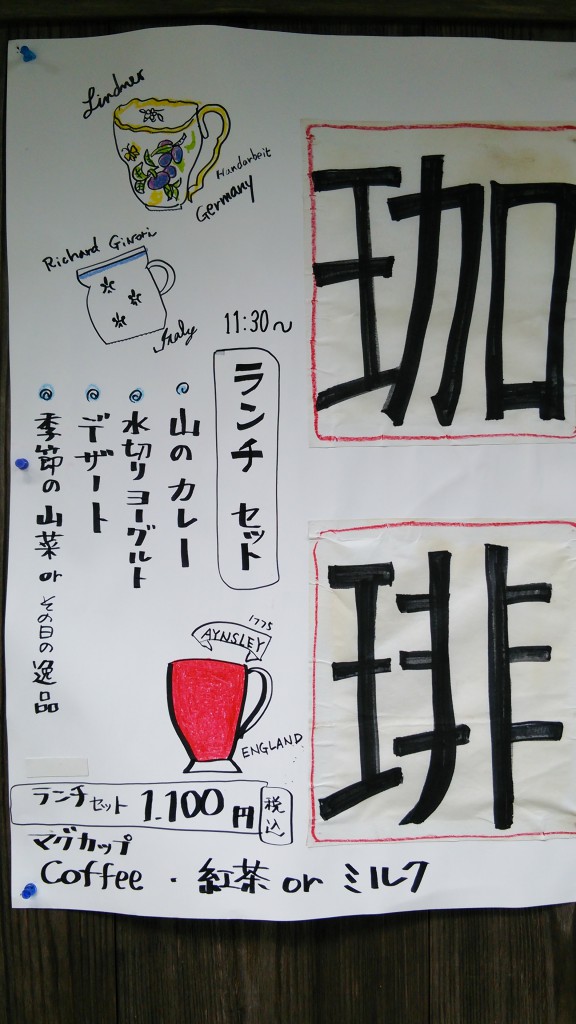 珈
琲
Lindner
Handarbeit
Germany
Richard Ginori
Italy
11:30〜
ランチ セット
山のカレー
水切りヨーグルト
デザート
季節の山菜 or その日の逸品
1775
AYNSLEY
ENGLAND
ランチセット 1.100円 税込
マグカップ
Coffee・紅茶 or ミルク